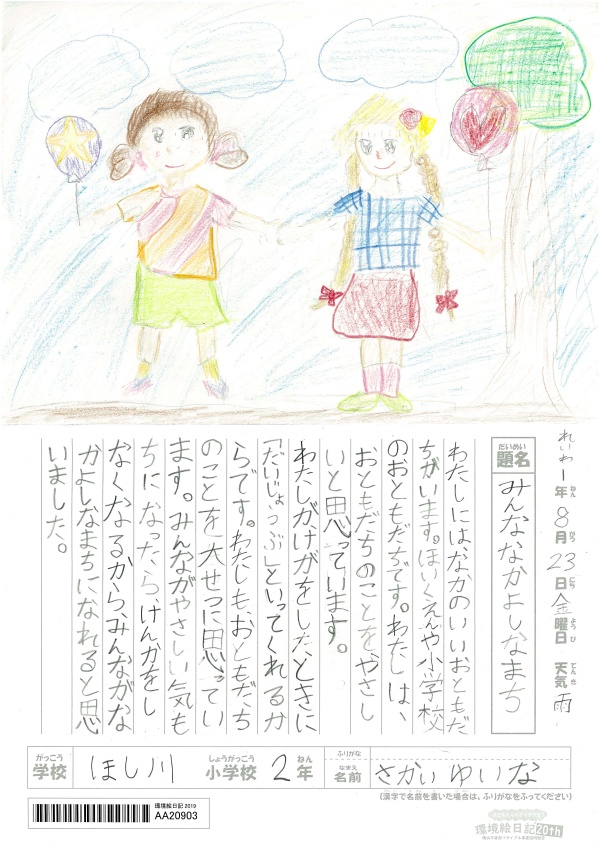 れいわ1年8月23日金曜日 天気雨
ねん がつ にち ようび てんき
だいめい
題名 みんななかよしなまち
わたしにはなかのいいおともだ
ちがいます。ほいくえんや小学校
のおともだちです。わたしは、
おともだちのことを、やさし
いと思っています。
わたしがけがをしたときに
「だいじょうぶ」といってくれるか
らです。わたしも、おともだち
のことを大せつに思ってい
ます。みんながやさしい気も
ちになったら、けんかをし
なくなるから、みんながな
かよしなまちになれると思
いました。
がっこう しょうがっこう ねん ふりがな
学校 ほし川 小学校 2年 なまえ 名前 さかい ゆいな
(漢字で名前を書いた場合は、ふりがなをふってください)
環境絵日記 2019
AA20903
環境絵日記20th